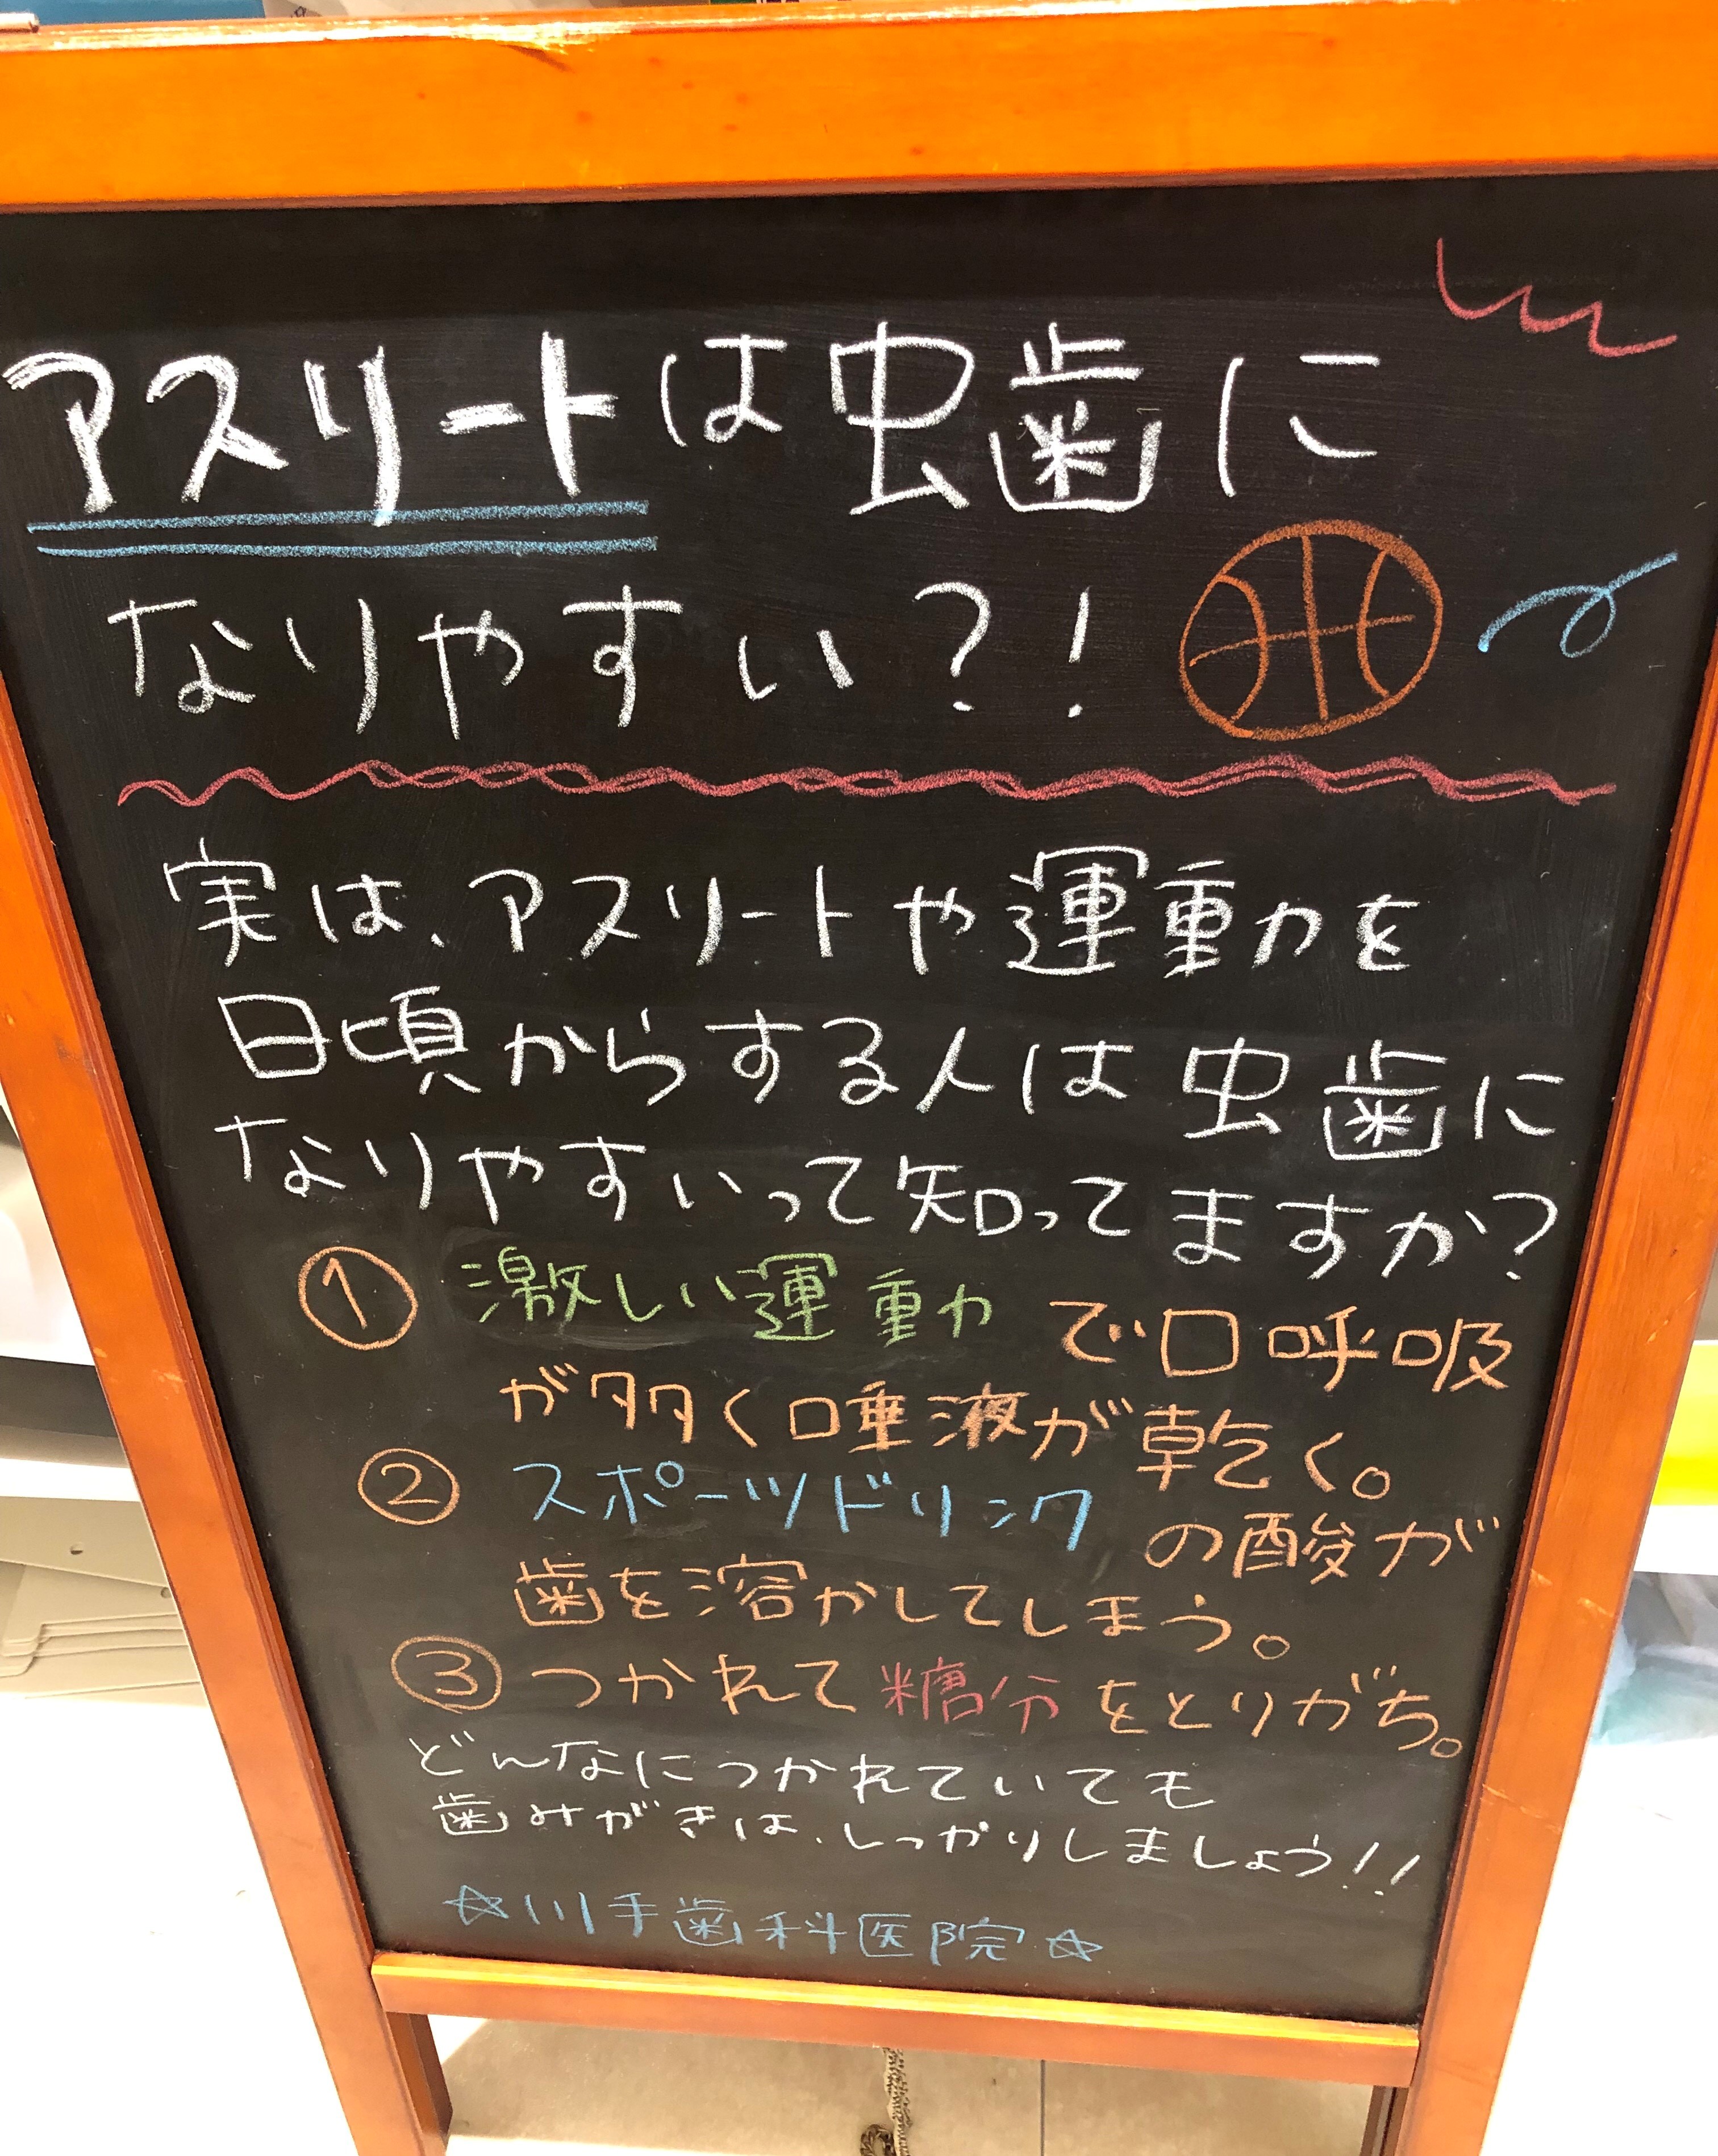 アスリートは虫歯に
なりやすい?!
実は、アスリートや運動を
日頃からする人は虫歯に
なりやすいって知ってますか?
① 激しい運動で口呼吸
が多く口唾液が乾く。
② スポーツドリンクの酸が
歯を溶かしてしまう。
③ つかれて糖分をとりがち。
どんなにつかれていても
歯みがきは、しっかりしましょう!!
☆川手歯科医院☆